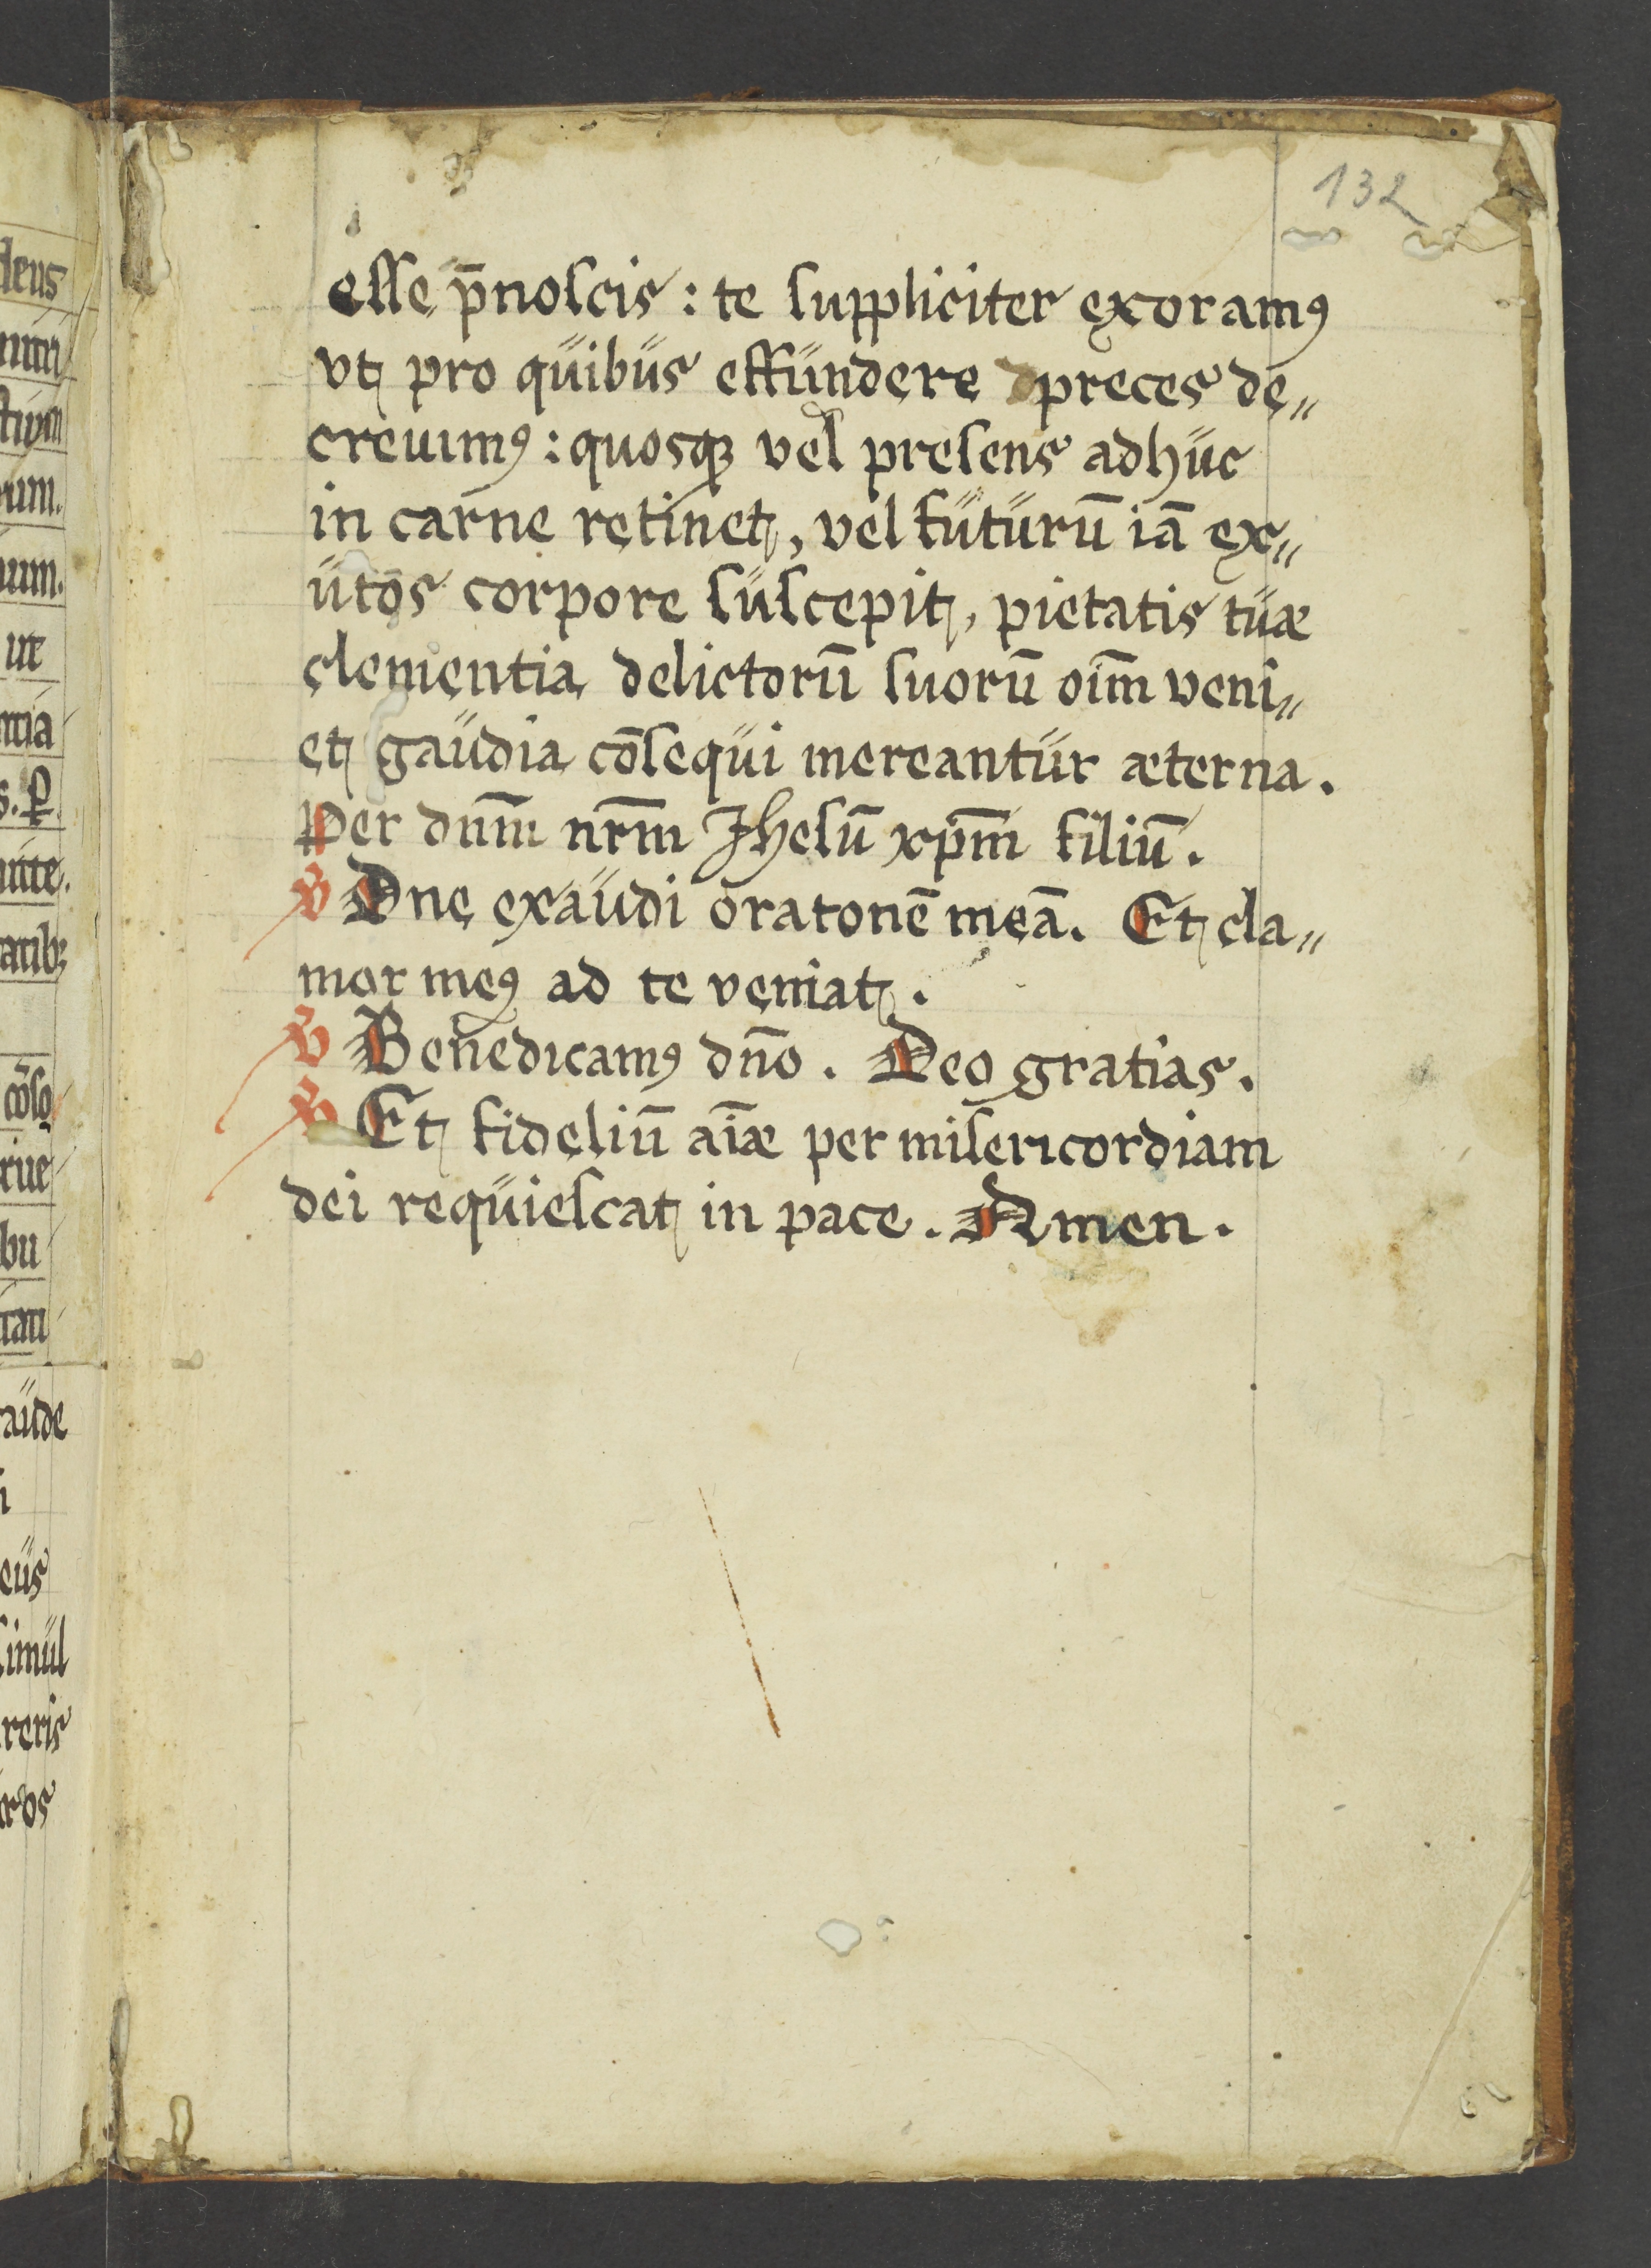 132
esse p̄noscis : te suppliciter exoramꝰ
vt pro quibus effundere preces de„
creuimꝰ : quosqꝫ vel presens adhuc
in carne retinet, vel futurū iā ex„
utos corpore suscepit, pietatis tuæ
clementia delictorū suorū oīm veni„
et gaudia cōsequi mereantur æterna.
Per dnm̄ nrm̄ Jhesū xpm̄ filiū.
℣ Dne exaudi oratonē meā. Et cla„
mor meꝰ ad te veniat.
℣ Benedicamꝰ dn̄o. Deo gratias.
℣ Et fideliū aīæ per misericordiam
dei requiescat in pace. Amen.